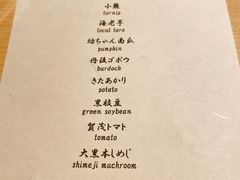 小蕪
turnip
海老芋
local taro
坊ちゃん南瓜
pumpkin
丹波ゴボウ
burdock
きたあかり
potato
黒枝豆
green soybean
賀茂トマト
tomato
大黒本しめじ
shimeji muchroom